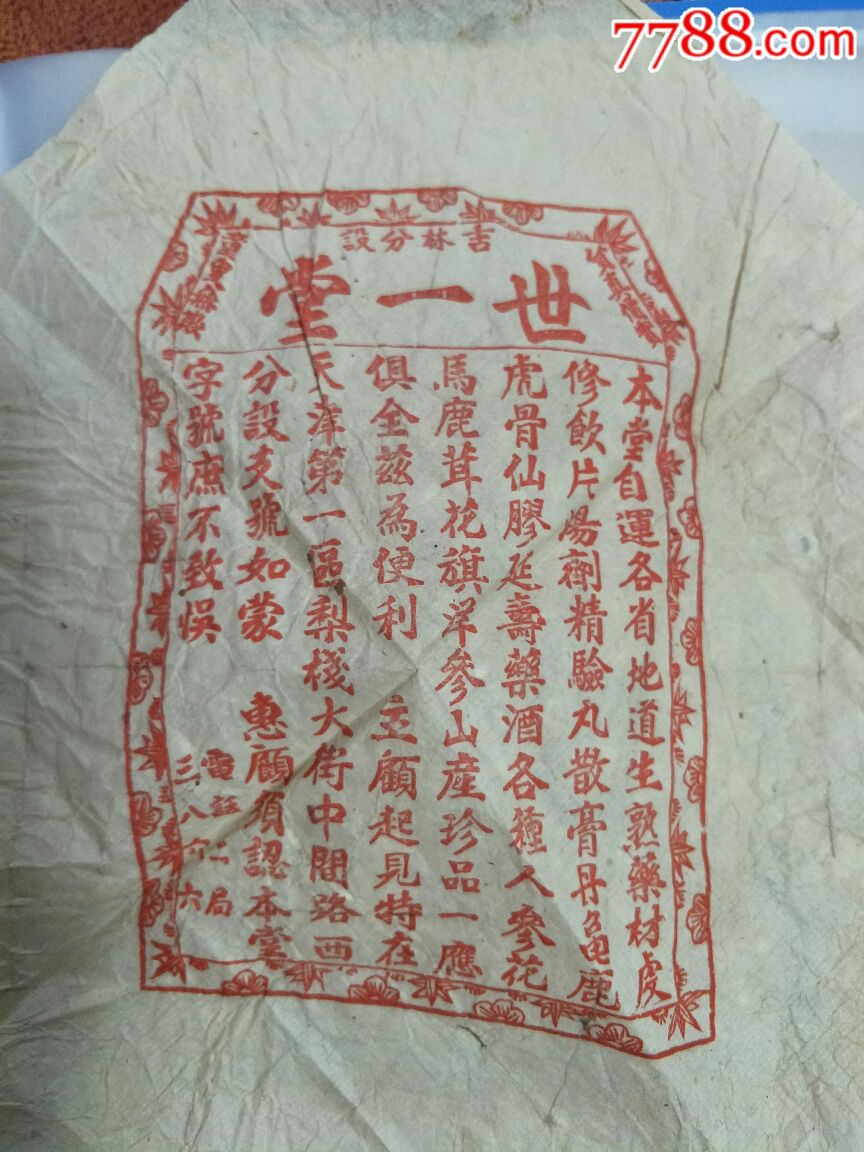 7788.com
吉林分設
世一堂
貨真價實
童叟無欺
本堂自運各省地道生熟藥材虔
修飲片湯劑精驗丸散膏丹龜鹿
虎骨仙膠延壽藥酒各種人參花
馬鹿茸花旗洋參山產珍品一應
俱全茲為便利 主顧起見特在
天津第一區梨棧大街中間路西
分設支號如蒙 惠顧須認本堂
字號庶不致悞
電話二局
三八六六